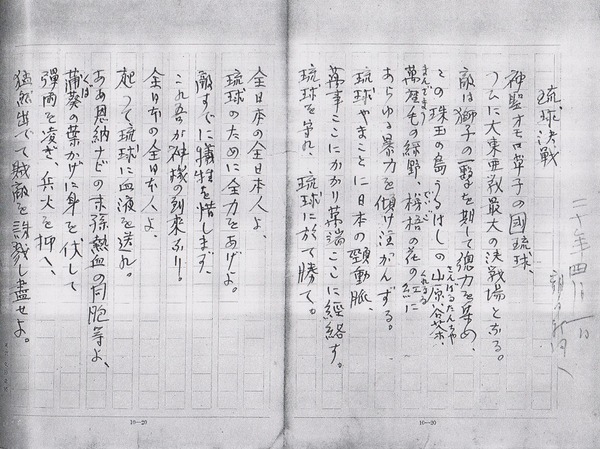 二十年四月
琉球決戦
神聖オモロ草子の國琉球、
つひに大東亜戦最大の決戦場となる。
敵は獅子の一撃を期して總力を集め、
この珠玉の島うるはしの山原谷茶、
萬座毛の緑野、梯梧の花の紅に
あらゆる暴力を傾け注がんずる。
琉球やまことに日本の頸動脈、
萬事ここにかかり萬端ここに經絡す。
琉球を守れ、琉球に於て勝て。
全日本の全日本人よ、
琉球のために全力をあげよ。
敵すでに犠牲を惜しまず、
これ吾が神機の到来なり。
全日本の全日本人よ、
起つて琉球に血液を送れ。
ああ恩納ナビの末孫熱血の同胞等よ、
蒲葵の葉かげに身を伏して
彈雨を凌ぎ、兵火を抑へ、
猛然出でて賊敵を誅戮し盡せよ。
10—20
10—20